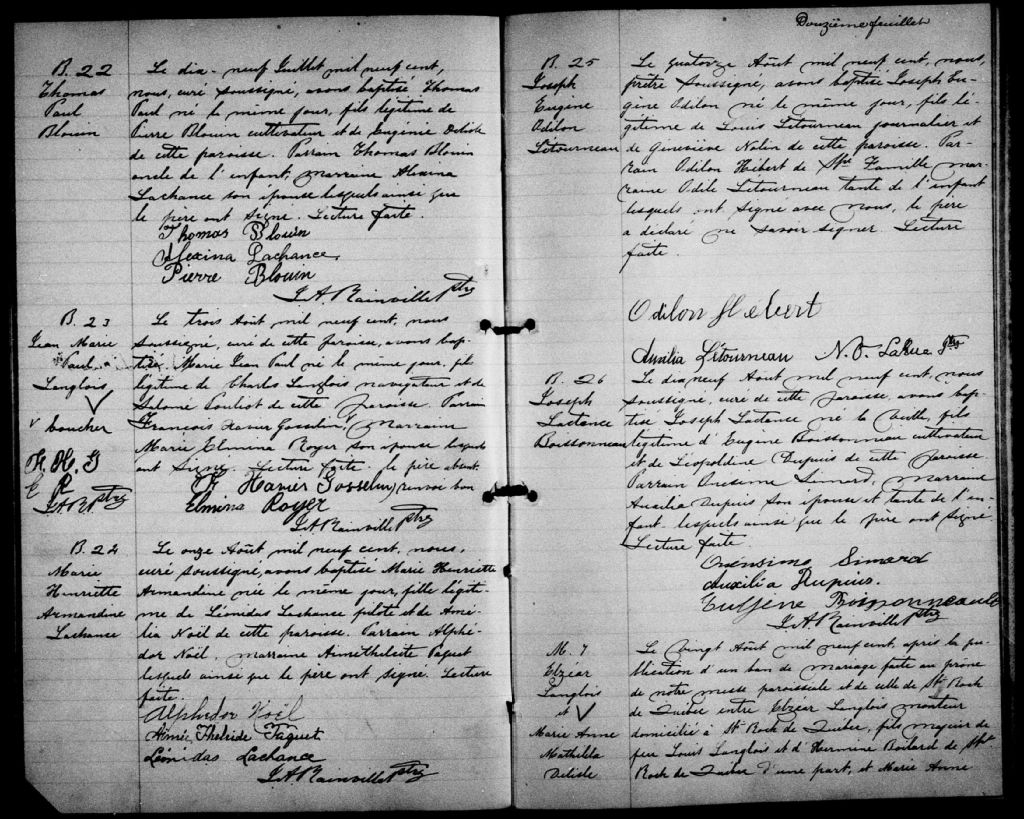 B. 22
Thomas
Paul
Blouin
Le dix-neuf Juillet mil neuf cent,
nous, curé soussigné, avons baptisé Thomas
Paul né, le même jour, fils légitime de
Pierre Blouin cultivateur et de Eugénie Delisle
de cette paroisse. Parrain Thomas Blouin
oncle de l'enfant, marraine Alexina
Lachance son épouse lesquels ainsi que
le père ont signé. Lecture faite.
Thomas Blouin
Alexina Lachance
Pierre Blouin
J. A. Rainville Ptre
B. 23
Jean Marie
Paul
Langlois
V
v boucher
F. H. G
E R
J A R ptre
Le trois Août mil neuf cent, nous
soussigné, curé de cette paroisse, avons bap-
tisé Marie Jean Paul né le même jour, fils
légitime de Charles Langlois navigateur et de
Salomé Pouliot de cette paroisse. Parrain
François Xavier Gosselin, marraine
Marie Elmina Royer son épouse lesquels
ont signé. Lecture faite. le père absent.
F Xavier Gosselin renvoi bon
Elmina Royer
J. A. Rainville Ptre
B. 24
Marie
Henriette
Armandine
Lachance
Le onze Août mil neuf cent, nous,
curé soussigné, avons baptisé Marie Henriette
Armandine née le même jour, fille légiti-
me de Léonidas Lachance pilote et de Amé-
lia Noël de cette paroisse. Parrain Alphé-
dor Noël, marraine Aiméthelide Paquet
lesquels ainsi que le père ont signé. Lecture
faite.
Alphédor Noël
Aimée Thelcide Paquet
Léonidas Lachance
J. A. Rainville Ptre
Douzième feuillet
B. 25
Joseph
Eugène
Odilon
Létourneau
Le quatorze Août mil neuf cent, nous,
prêtre soussigné, avons baptisé Joseph Eu-
gène Odilon né le même jour, fils lé-
gitime de Louis Létourneau journalier et
de Geneviève Nolin de cette paroisse. Par-
rain Odilon Hébert de Ste Famille mar-
raine Odile Létourneau tante de l'enfant
lesquels ont signé avec nous, le père
a déclaré ne savoir signer. Lecture
faite.
Odilon Hébert
Létourneau N. O. LaRue Ptre
B. 26
Joseph
Lactance
Boissonneau
Le dix neuf Août mil neuf cent, nous
soussigné, curé de cette paroisse, avons bap-
tisé Joseph Lactance né la veille, fils
légitime d'Eugène Boissonneau cultivateur
et de Léopoldine Dupuis de cette paroisse.
Parrain Onésime Simard, marraine
Auxilia Dupuis son épouse et tante de l'en-
fant, lesquels ainsi que le père ont signé
Lecture faite.
Onensime Simard
Auxilia Dupuis.
Eugène Boissonneault
J. A. Rainville Ptre
M. 7
Elzéar
Langlois
et V
Marie Anne
Mathilda
Delisle
Le vingt Août mil neuf cent, après la pu-
blication d'un ban de mariage faite au prône
de notre messe paroissiale et de celle de St Roch
de Québec entre Elzéar Langlois
domicilié à St Roch de Québec, fils majeur de
feu Louis Langlois et d'Hermine Boilard de St
Roch de Québec d'une part, et Marie Anne